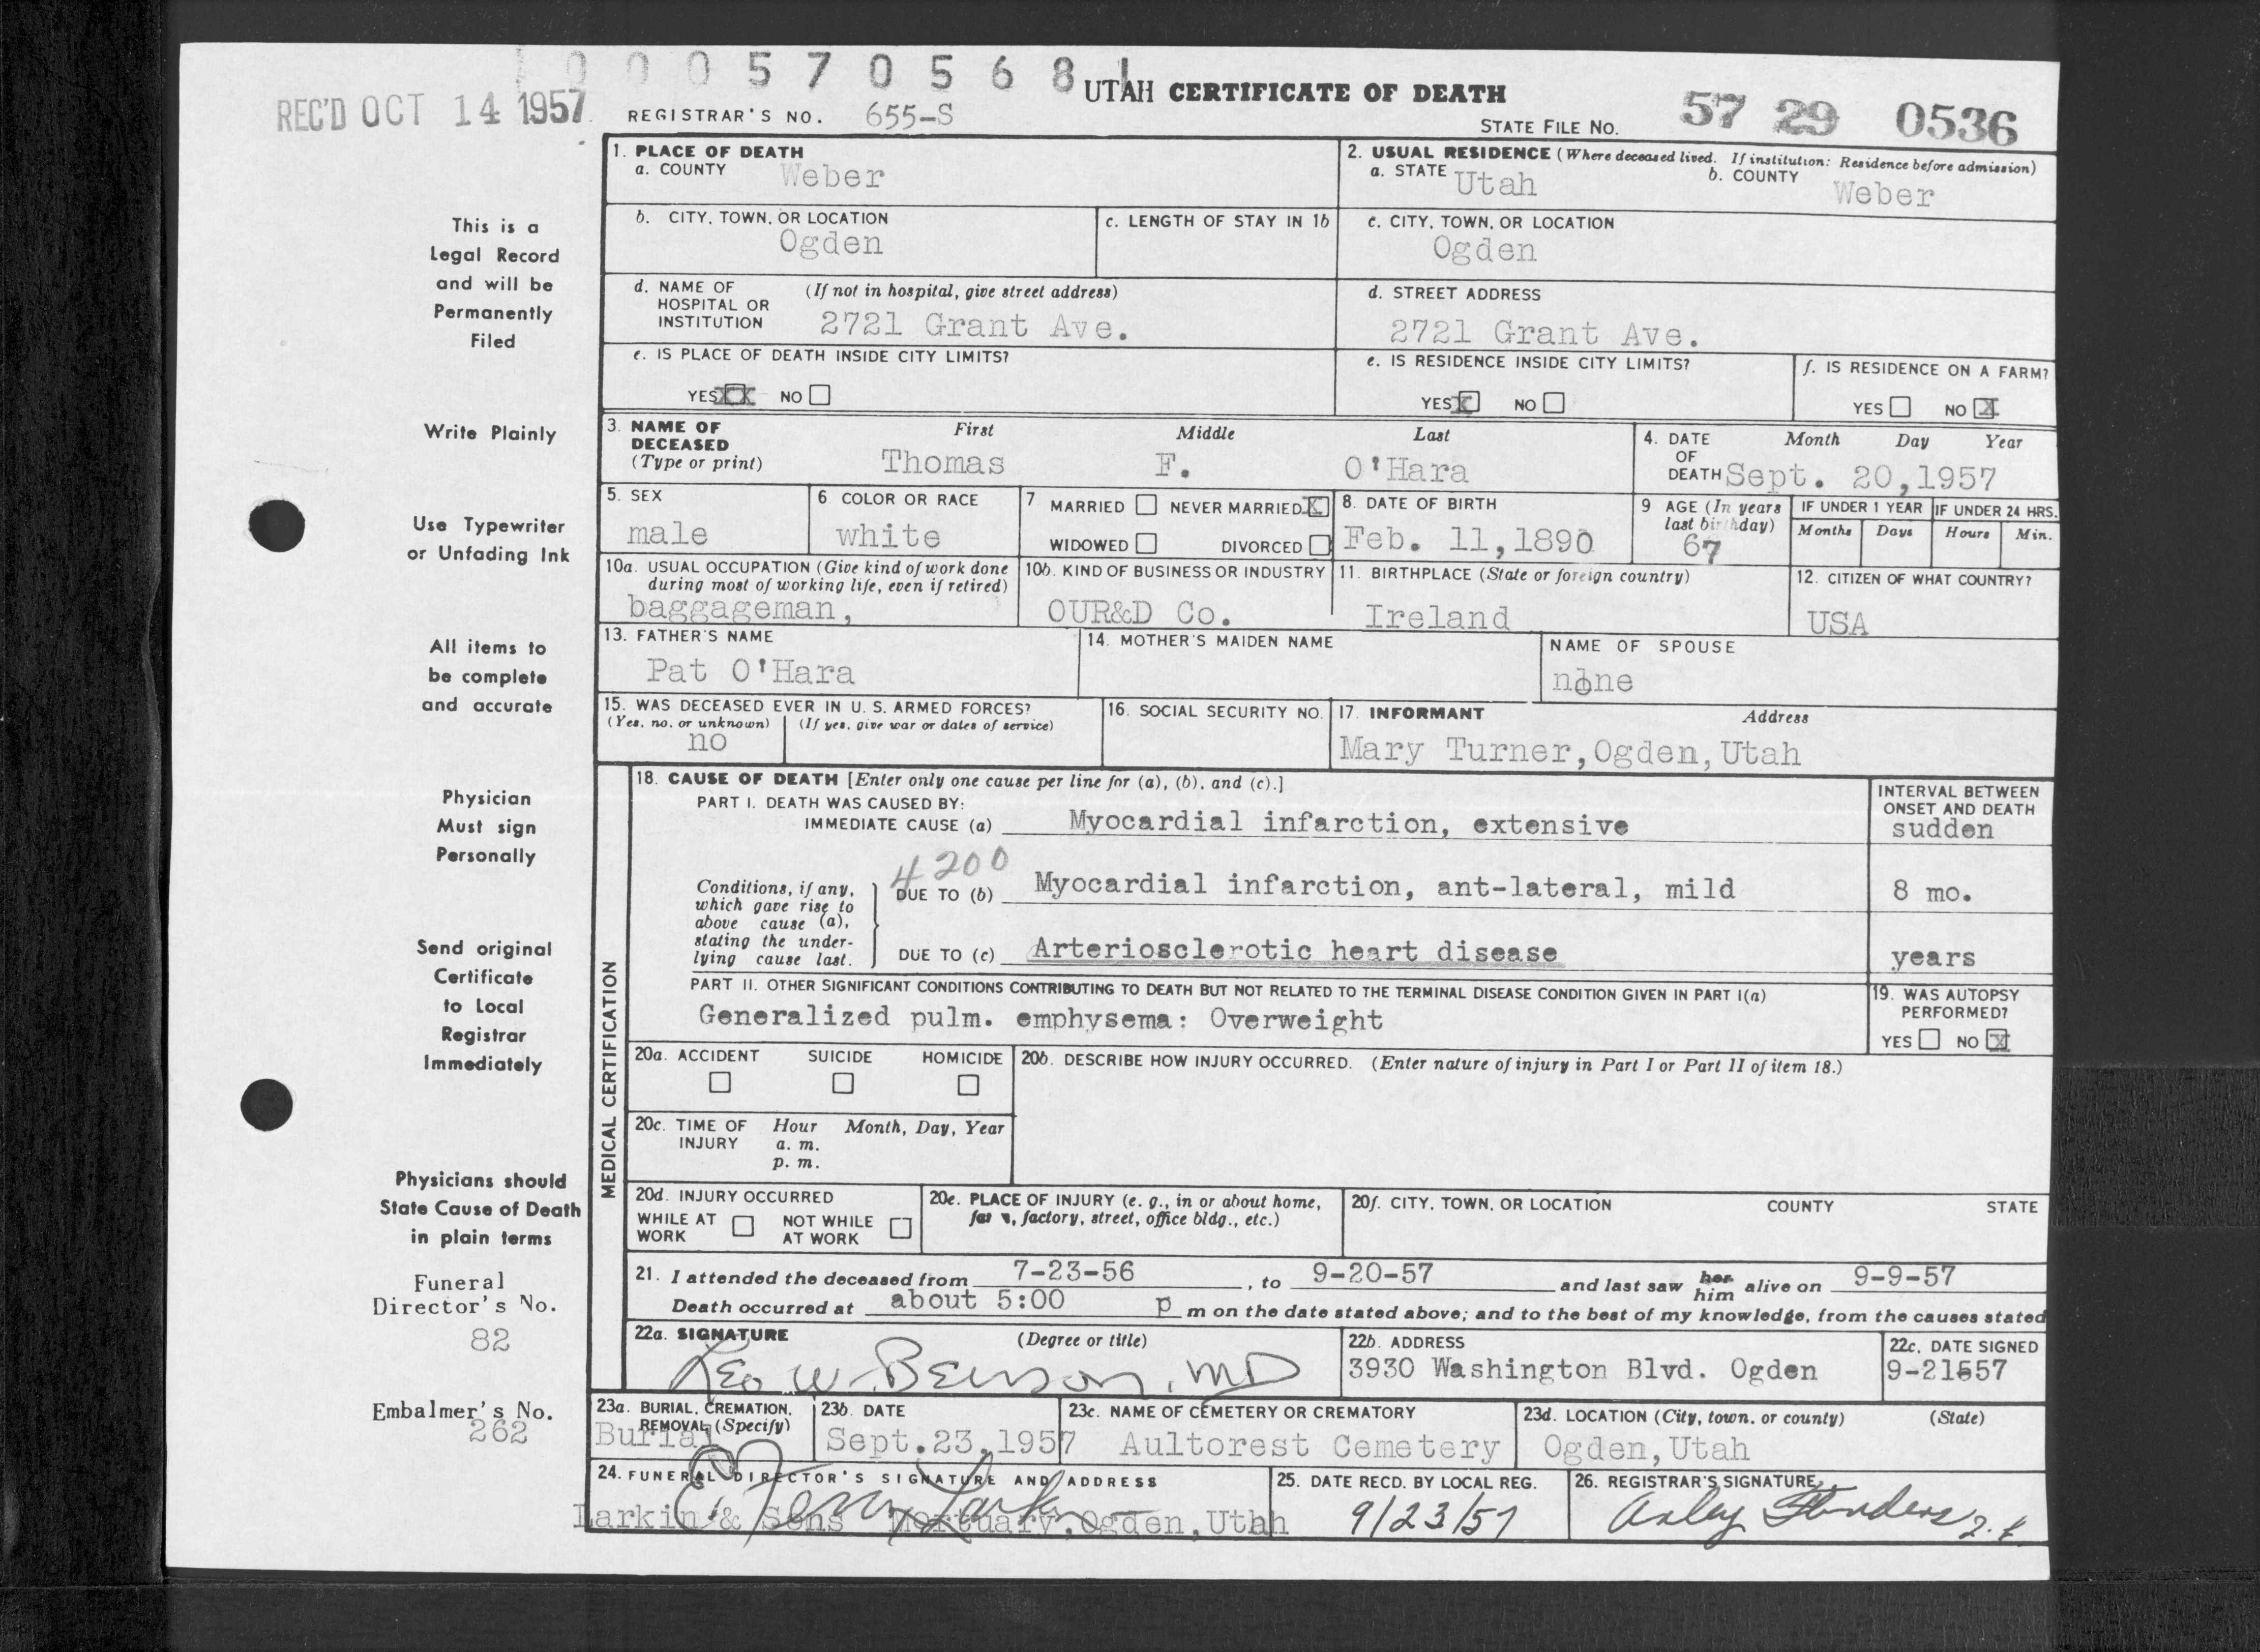 0 0 0 5 7 0 5 6 8 1
REC'D OCT 14 1957
UTAH CERTIFICATE OF DEATH
REGISTRAR'S NO. 655-S
STATE FILE NO. 57 29 0536
This is a
Legal Record
and will be
Permanently
Filed
Write Plainly
Use Typewriter
or Unfading Ink
All items to
be complete
and accurate
Physician
Must sign
Personally
Send original
Certificate
to Local
Registrar
Immediately
Physicians should
State Cause of Death
in plain terms
Funeral
Director's No.
82
Embalmer's No.
262
1. PLACE OF DEATH
a. COUNTY Weber
2. USUAL RESIDENCE (Where deceased lived. If institution: Residence before admission)
a. STATE Utah b. COUNTY Weber
b. CITY, TOWN, OR LOCATION
Ogden
c. LENGTH OF STAY IN 1b
c. CITY, TOWN, OR LOCATION
Ogden
d. NAME OF HOSPITAL OR INSTITUTION (If not in hospital, give street address)
2721 Grant Ave.
d. STREET ADDRESS
2721 Grant Ave.
e. IS PLACE OF DEATH INSIDE CITY LIMITS?
YES XX NO
e. IS RESIDENCE INSIDE CITY LIMITS?
YES X NO
f. IS RESIDENCE ON A FARM?
YES NO X
3. NAME OF DECEASED (Type or print) First Middle Last
Thomas F. O'Hara
4. DATE OF DEATH Month Day Year
Sept. 20,1957
5. SEX
male
6 COLOR OR RACE
white
7 MARRIED NEVER MARRIED X
WIDOWED DIVORCED
8. DATE OF BIRTH
Feb. 11,1890
9 AGE (In years last birthday)
67
IF UNDER 1 YEAR IF UNDER 24 HRS.
Months Days Hours Min.
10a. USUAL OCCUPATION (Give kind of work done during most of working life, even if retired)
baggageman,
10b. KIND OF BUSINESS OR INDUSTRY
OUR&D Co.
11. BIRTHPLACE (State or foreign country)
Ireland
12. CITIZEN OF WHAT COUNTRY?
USA
13. FATHER'S NAME
Pat O'Hara
14. MOTHER'S MAIDEN NAME
NAME OF SPOUSE
none
15. WAS DECEASED EVER IN U. S. ARMED FORCES?
(Yes, no, or unknown) (If yes, give war or dates of service)
no
16. SOCIAL SECURITY NO.
17. INFORMANT Address
Mary Turner,Ogden,Utah
MEDICAL CERTIFICATION
18. CAUSE OF DEATH [Enter only one cause per line for (a), (b), and (c).]
PART I. DEATH WAS CAUSED BY:
IMMEDIATE CAUSE (a) Myocardial infarction, extensive
INTERVAL BETWEEN ONSET AND DEATH
sudden
4200
Conditions, if any, which gave rise to above cause (a), stating the underlying cause last.
DUE TO (b) Myocardial infarction, ant-lateral, mild
8 mo.
DUE TO (c) Arteriosclerotic heart disease
years
PART II. OTHER SIGNIFICANT CONDITIONS CONTRIBUTING TO DEATH BUT NOT RELATED TO THE TERMINAL DISEASE CONDITION GIVEN IN PART I(a)
Generalized pulm. emphysema: Overweight
19. WAS AUTOPSY PERFORMED?
YES NO X
20a. ACCIDENT SUICIDE HOMICIDE
20b. DESCRIBE HOW INJURY OCCURRED. (Enter nature of injury in Part I or Part II of item 18.)
20c. TIME OF INJURY Hour Month, Day, Year
a. m.
p. m.
20d. INJURY OCCURRED
WHILE AT WORK NOT WHILE AT WORK
20e. PLACE OF INJURY (e. g., in or about home, farm, factory, street, office bldg., etc.)
20f. CITY, TOWN, OR LOCATION COUNTY STATE
21. I attended the deceased from 7-23-56, to 9-20-57 and last saw her him alive on 9-9-57
Death occurred at about 5:00 p m on the date stated above; and to the best of my knowledge, from the causes stated
22a. SIGNATURE (Degree or title)
Leo W. Benson, MD
22b. ADDRESS
3930 Washington Blvd. Ogden
22c. DATE SIGNED
9-21557
23a. BURIAL, CREMATION, REMOVAL (Specify)
Burial
23b. DATE
Sept.23,1957
23c. NAME OF CEMETERY OR CREMATORY
Aultorest Cemetery
23d. LOCATION (City, town, or county) (State)
Ogden,Utah
24. FUNERAL DIRECTOR'S SIGNATURE AND ADDRESS
Larkin & Sons Mortuary,Ogden,Utah
25. DATE RECD. BY LOCAL REG.
9/23/57
26. REGISTRAR'S SIGNATURE